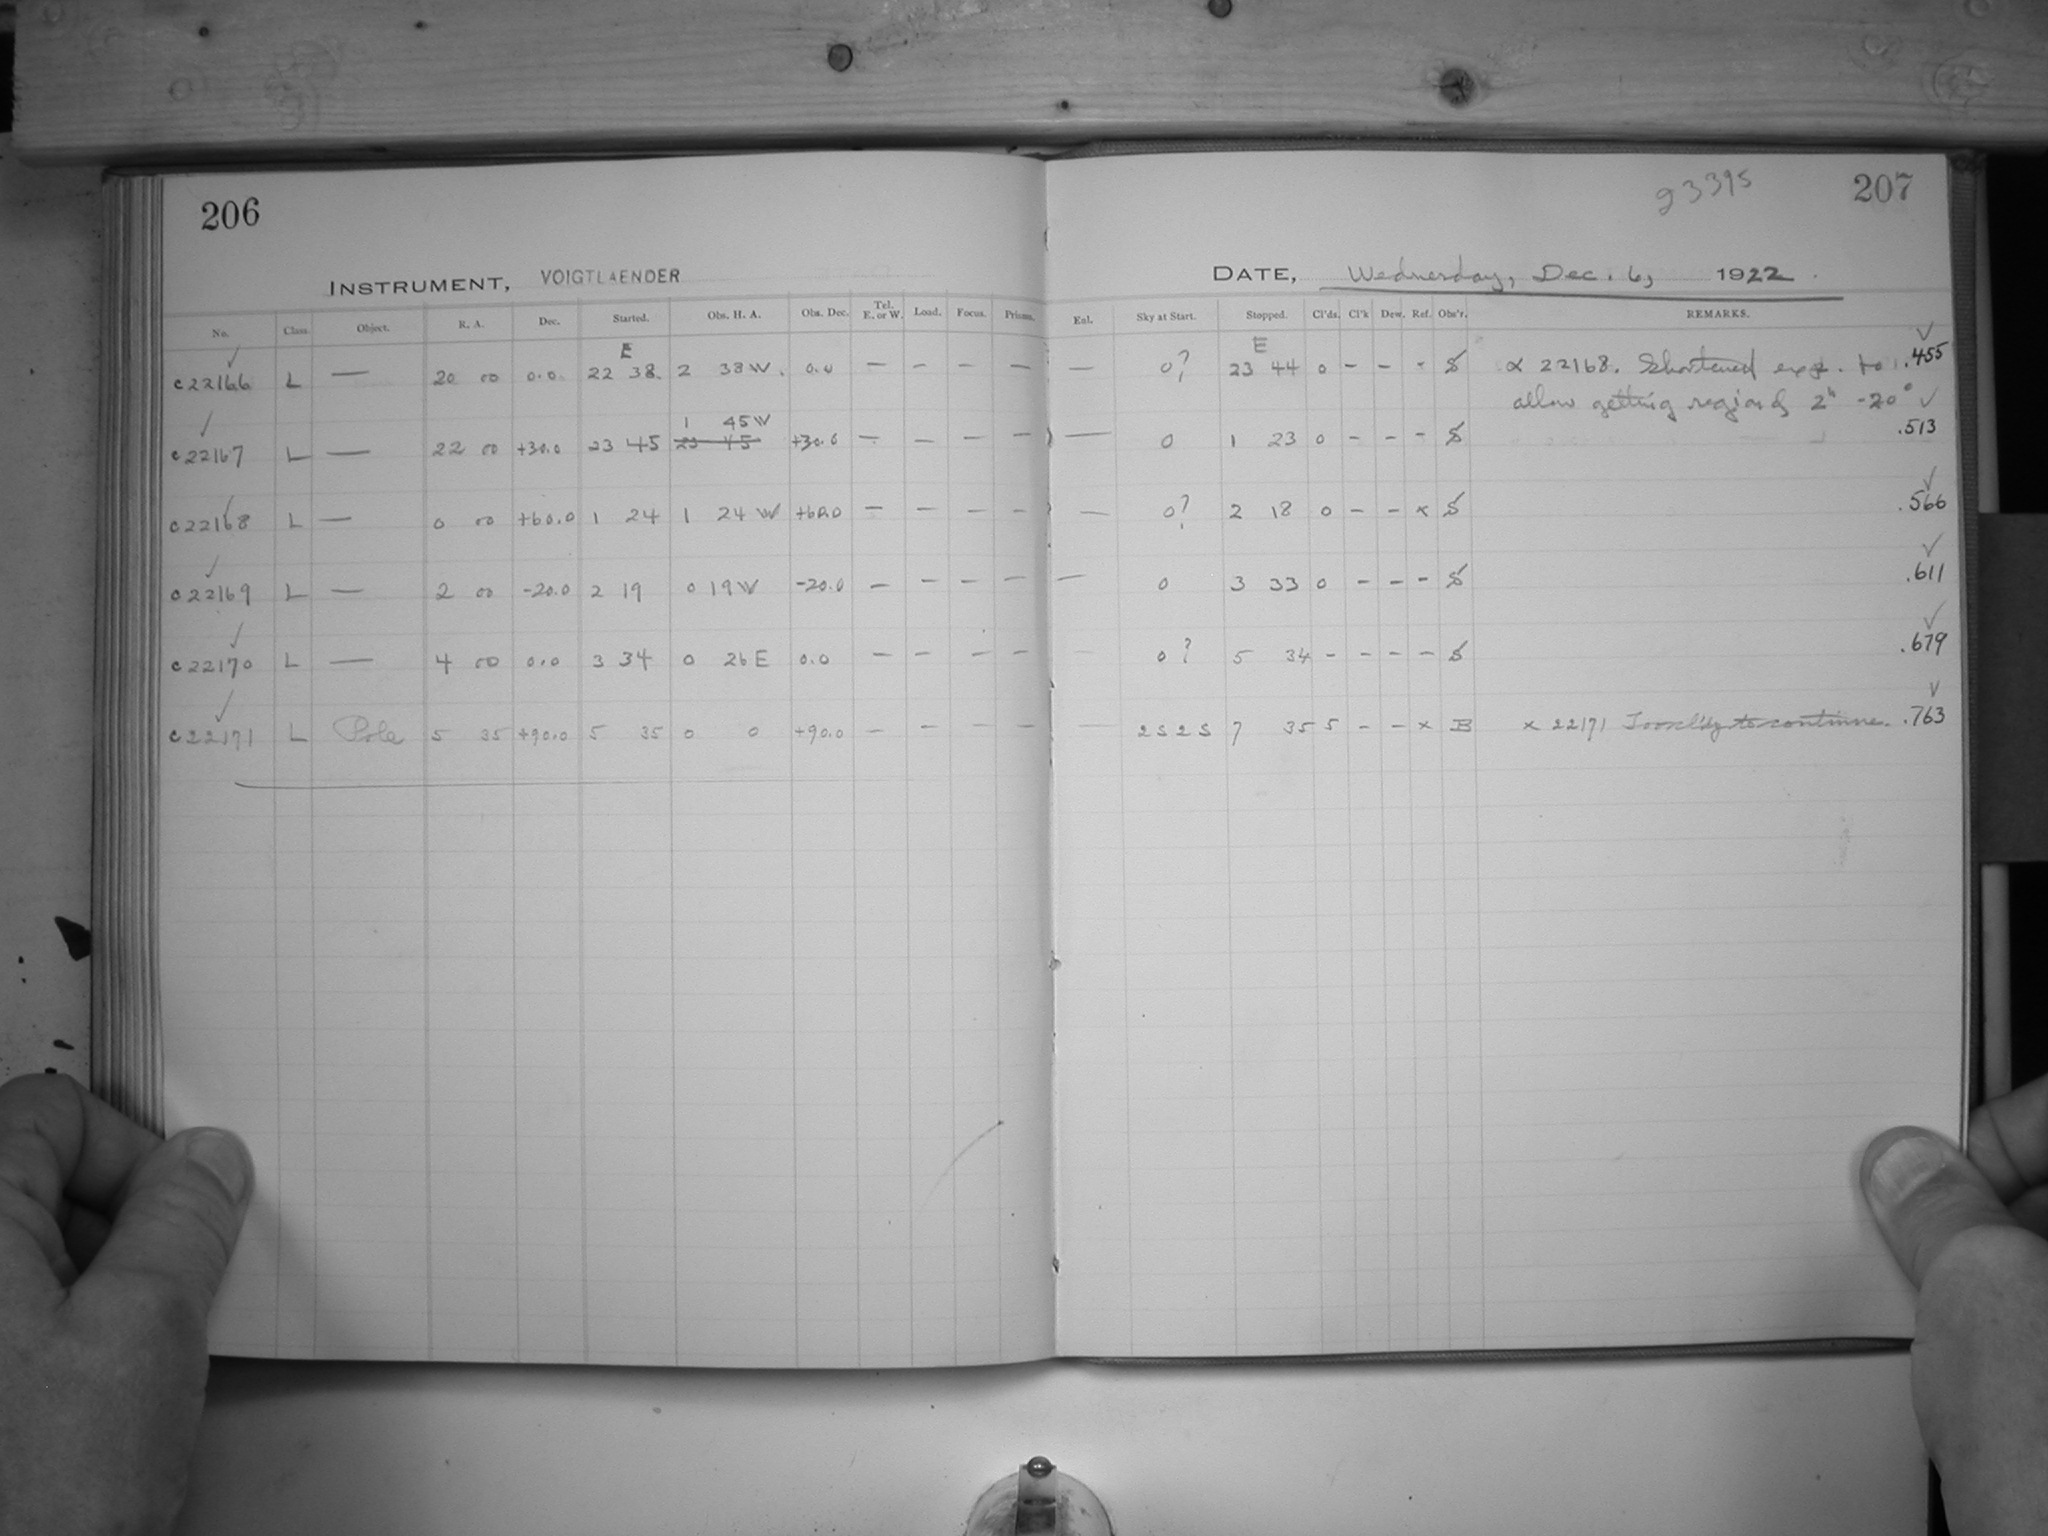 206
INSTRUMENT, VOIGTLAENDER
No. Class. Object. R. A. Dec. Started. Obs. H. A. Obs. Dec. Tel. E. or W. Load. Focus. Prisms.
E
c22166 L — 20 00 0.0 22 38 2 38 W. 0.0 — — — —
1 45 W
c22167 L — 22 00 +30.0 23 45 23 45 +30.0 — — — —
c22168 L — 0 00 +60.0 1 24 1 24 W +60.0 — — — —
c22169 L — 2 00 -20.0 2 19 0 19 W -20.0 — — — —
c22170 L — 4 00 0.0 3 34 0 26 E 0.0 — — — —
c22171 L Pole 5 35 +90.0 5 35 0 0 +90.0 — — — —
23395
207
DATE, Wednesday, Dec. 6, 1922.
Enl. Sky at Start. Stopped. Cl'ds. Cl'k Dew. Ref. Obs'r. REMARKS.
E
— 0? 23 44 0 - - - S x 22168. Shortened exp. to .455
allow getting region of 2h -20°
— 0 1 23 0 - - - S .513
— 0? 2 18 0 - - x S .566
— 0 3 33 0 - - - S .611
— 0? 5 34 - - - - S .679
— 2S 2S 7 35 5 - - x B x 22171 to continue. .763